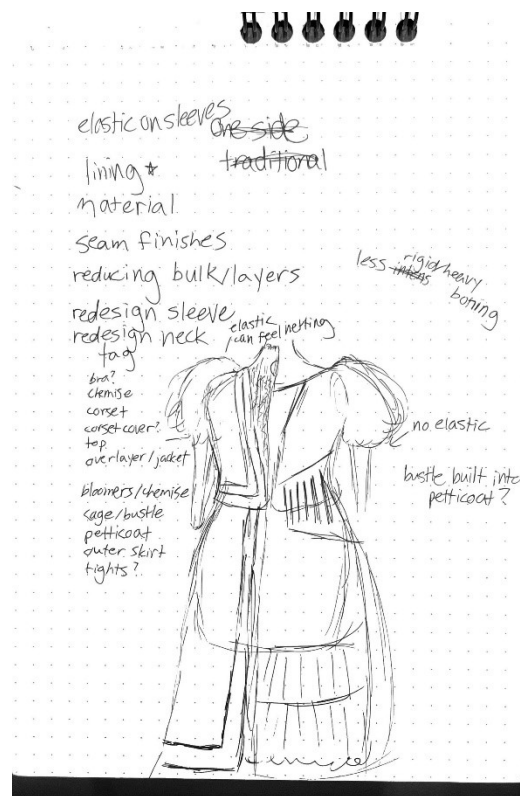 elastic on sleeves
one side
traditional
lining
material
seam finishes
reducing bulk/layers
redesign sleeve
redesign neck
tag
less intens rigid/heavy
boning
elastic
can feel netting
bra?
chemise
corset
corset cover?
top
overlayer/jacket
bloomers/chemise
cage/bustle
petticoat
outer skirt
tights?
no elastic
bustle built into
petticoat?